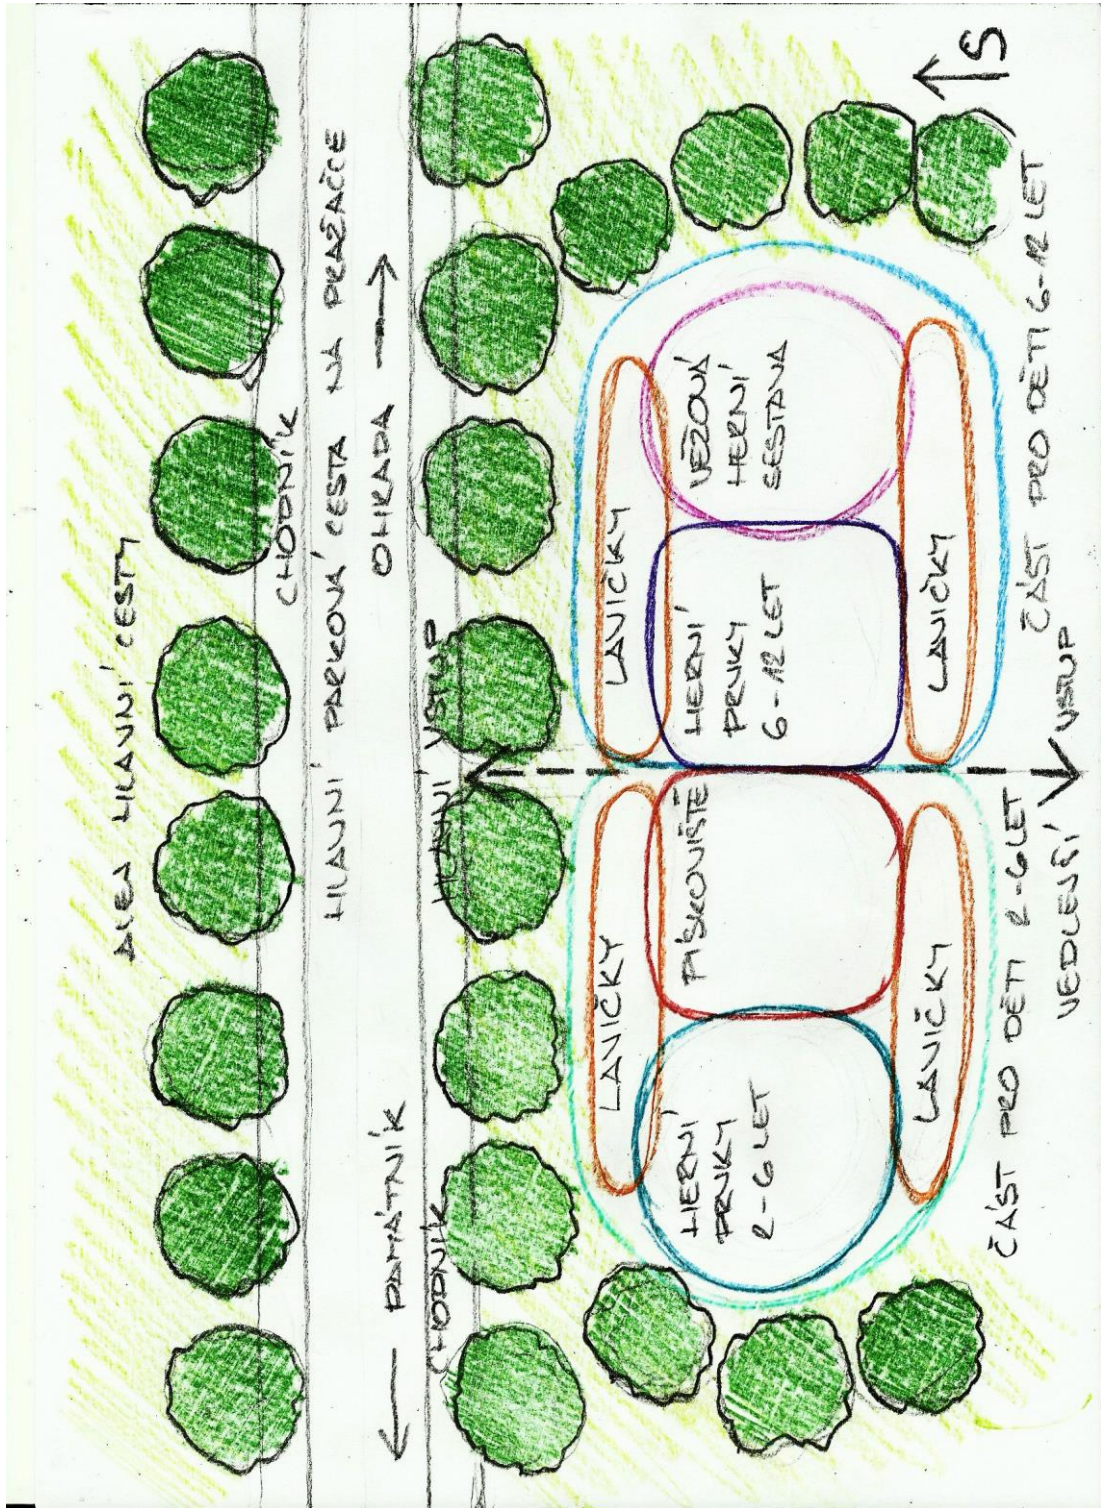 ALEJ HLAVNÍ CESTY
CHODNÍK
HLAVNÍ PARKOVÁ CESTA NA PRAŽAČCE
PAMÁTNÍK
OHRADA
CHODNÍK
HLAVNÍ VSTUP
LAVIČKY
LAVIČKY
HERNÍ
PRVKY
2-6 LET
PÍSKOVIŠTĚ
HERNÍ
PRVKY
6-12 LET
VĚŽOVÁ
HERNÍ
SESTAVA
LAVIČKY
LAVIČKY
S
ČÁST PRO DĚTI 2-6 LET
ČÁST PRO DĚTI 6-12 LET
VEDLEJŠÍ VSTUP